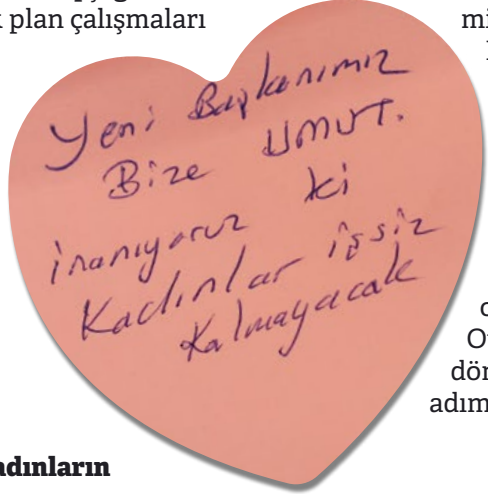 k plan çalışmaları
mi
Yeni Başkanımız
Bize UMUT.
inanıyoruz ki
Kadınlar işsiz
Kalmayacak
dör
adım
adınların